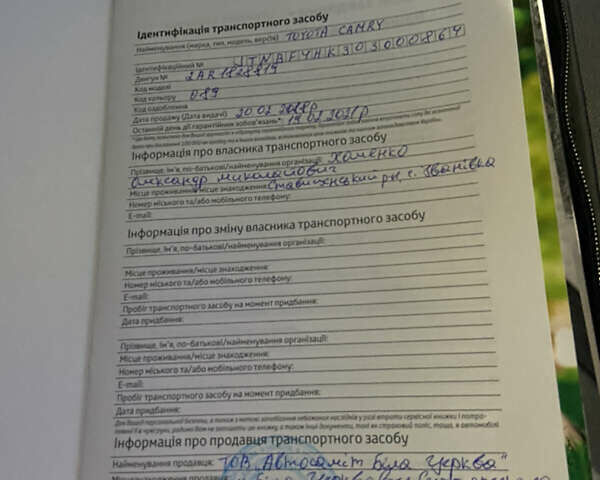 Ідентифікація транспортного засобу
Найменування (марка, тип, модель, версія) TOYOTA CAMRY
Ідентифікаційний № JTNBF4HK303000864
Двигун № 2AR1828819
Код моделі
Код кольору 089
Код оздоблення
Дата продажу (Дата видачі) 20.02.2018р
Останній день дії гарантійних зобов'язань* 19.02.2021р
Інформація про власника транспортного засобу
Прізвище, Ім'я, по-батькові/найменування організації: Хоменко
Олександр Миколайович
Місце проживання/місце знаходження: Ставищенський рн, с. Іванівка
Номер міського та/або мобільного телефону:
E-mail:
Інформація про зміну власника транспортного засобу
Прізвище, Ім'я, по-батькові/найменування організації:
Місце проживання/місце знаходження:
Номер міського та/або мобільного телефону:
E-mail:
Пробіг транспортного засобу на момент придбання:
Дата придбання:
Прізвище, Ім'я, по-батькові/найменування організації:
Місце проживання/місце знаходження:
Номер міського та/або мобільного телефону:
E-mail:
Пробіг транспортного засобу на момент придбання:
Дата придбання:
Для Вашої персональної безпеки, а також з метою запобігання небажаних наслідків у разі втрати сервісної книжки і потра-
Інформація про продавця транспортного засобу
Найменування продавця: ТОВ „Автосаміт Біла Церква"